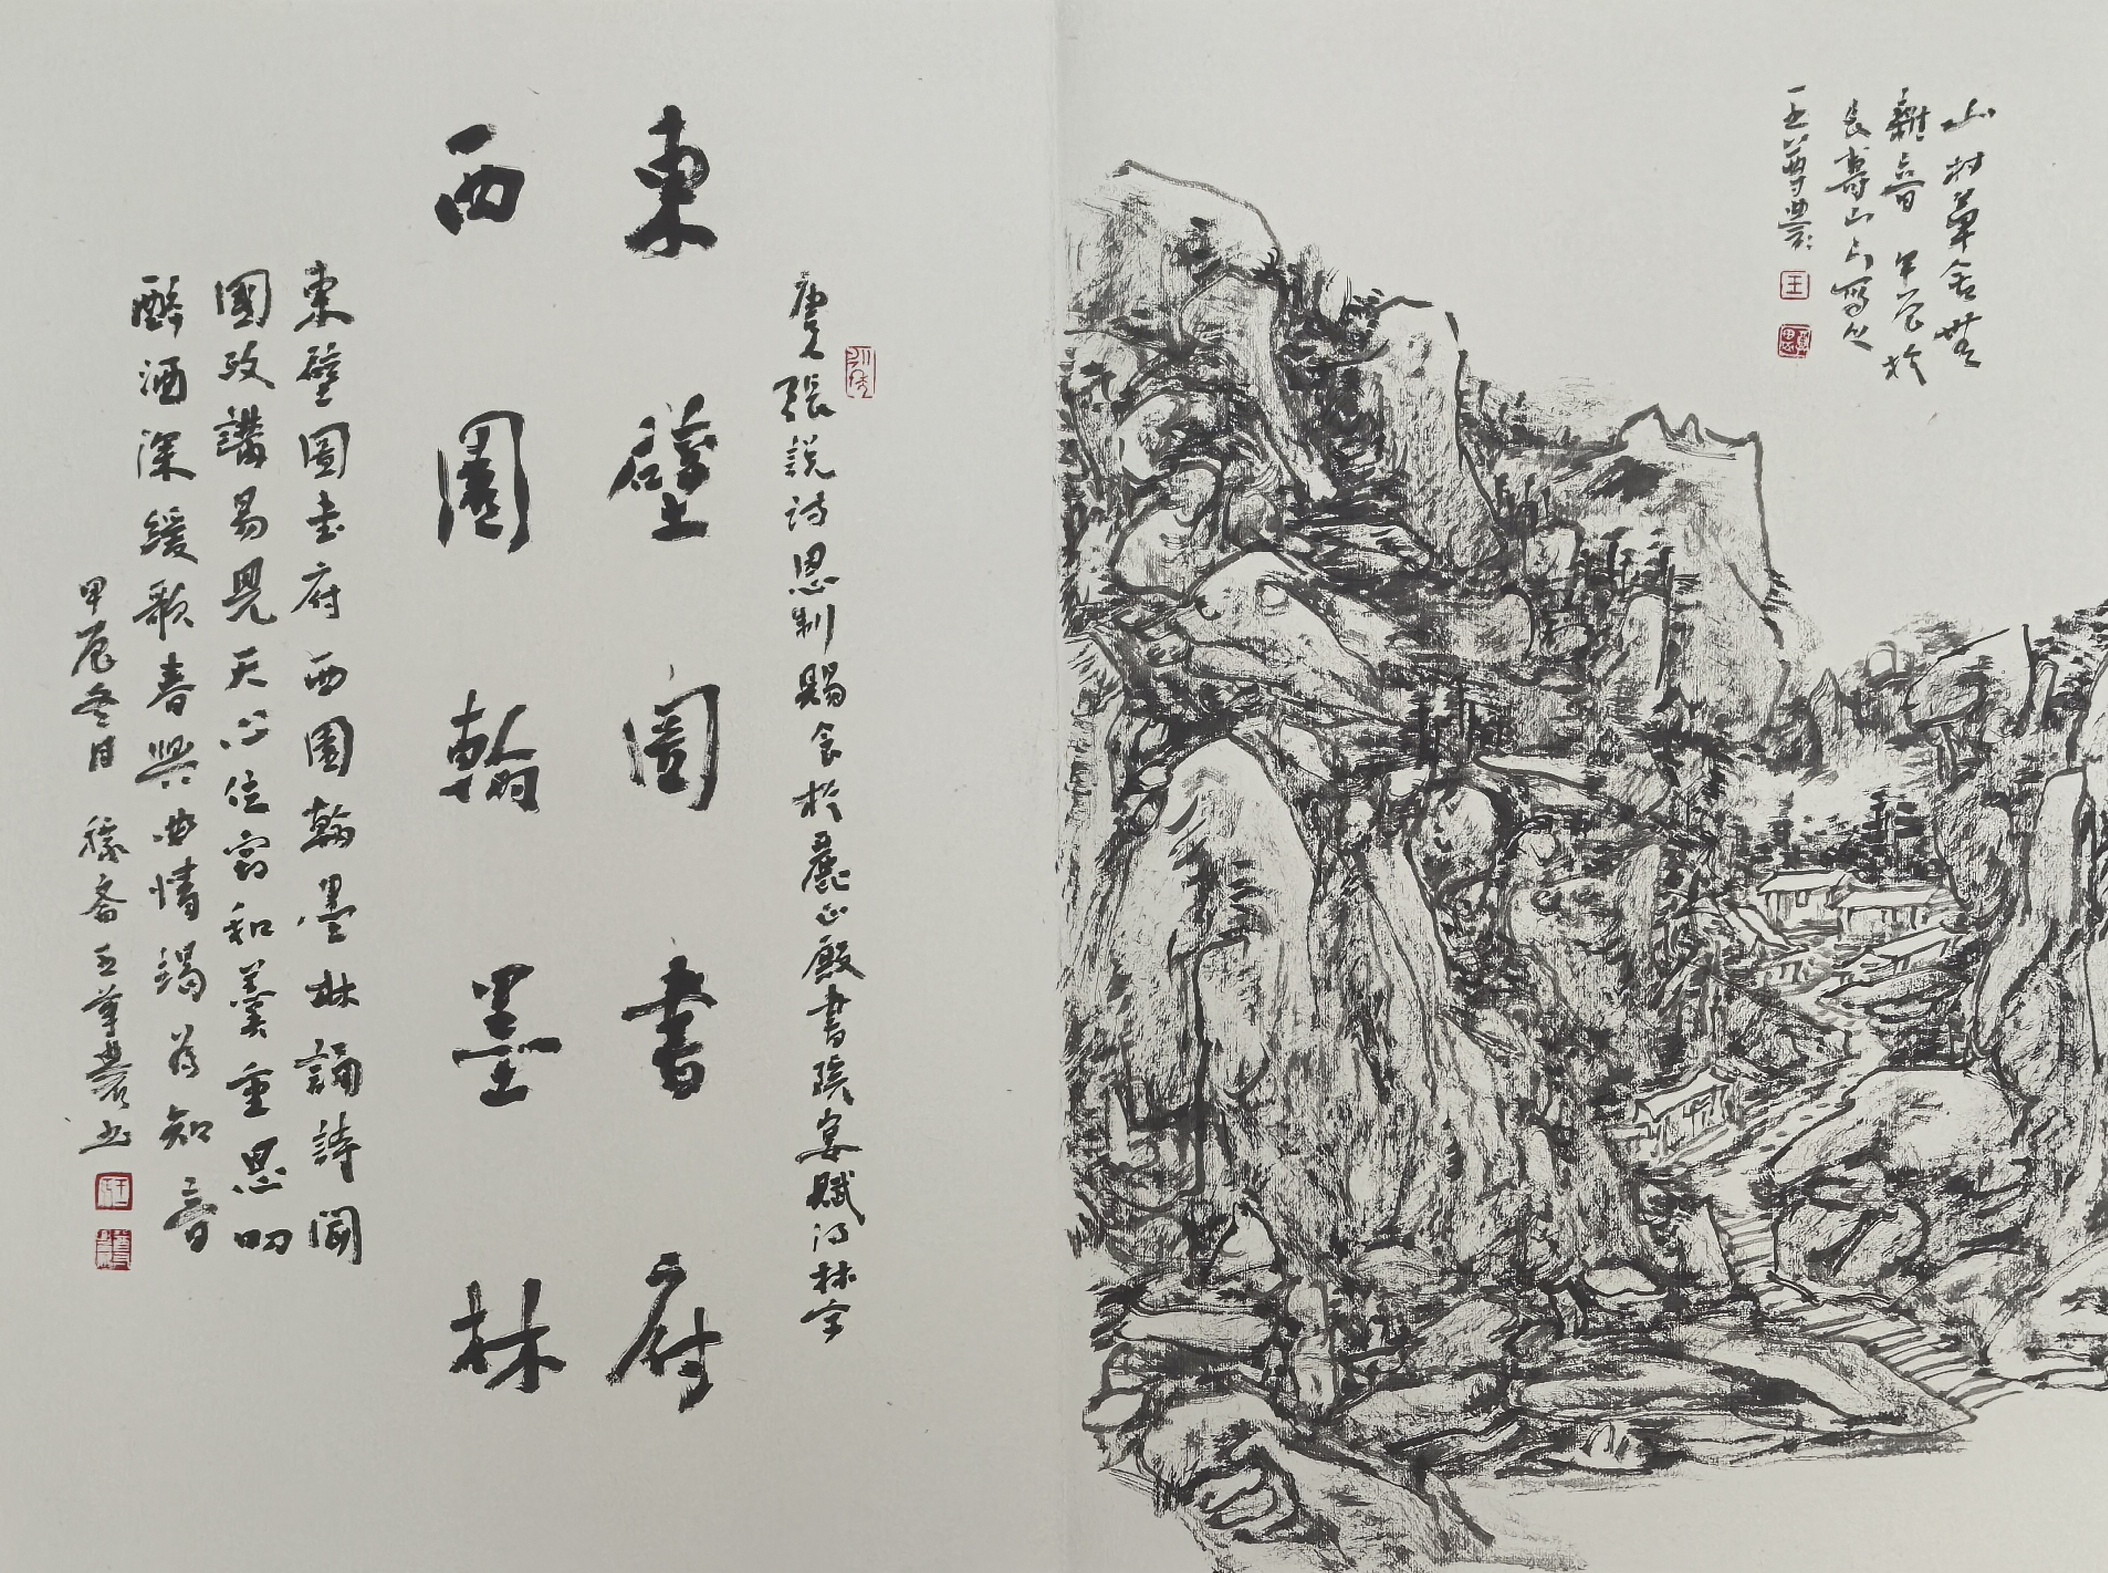 山村草舍無
雜音 甲辰於
長壽山上寫之
王尊農
唐人張説诗恩制賜食於麗正殿書院宴賦得林字
東壁圖書府
西園翰墨林
東壁圖書府西園翰墨林誦詩聞
國政講易見天心位竊和羹重恩叨
醉酒深緩歌春興曲情竭爲知音
甲辰冬月 穆齋王尊農书